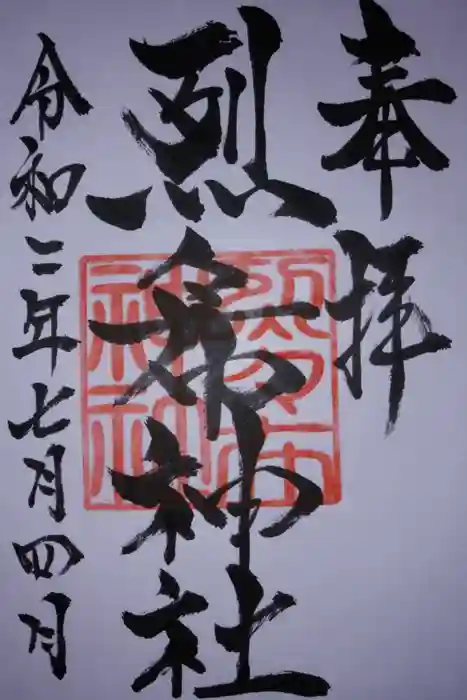 奉拝
烈々布神社
令和二年七月四月